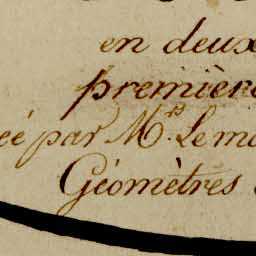 en deux
première
éé par Mrs. Lema
Géomètres